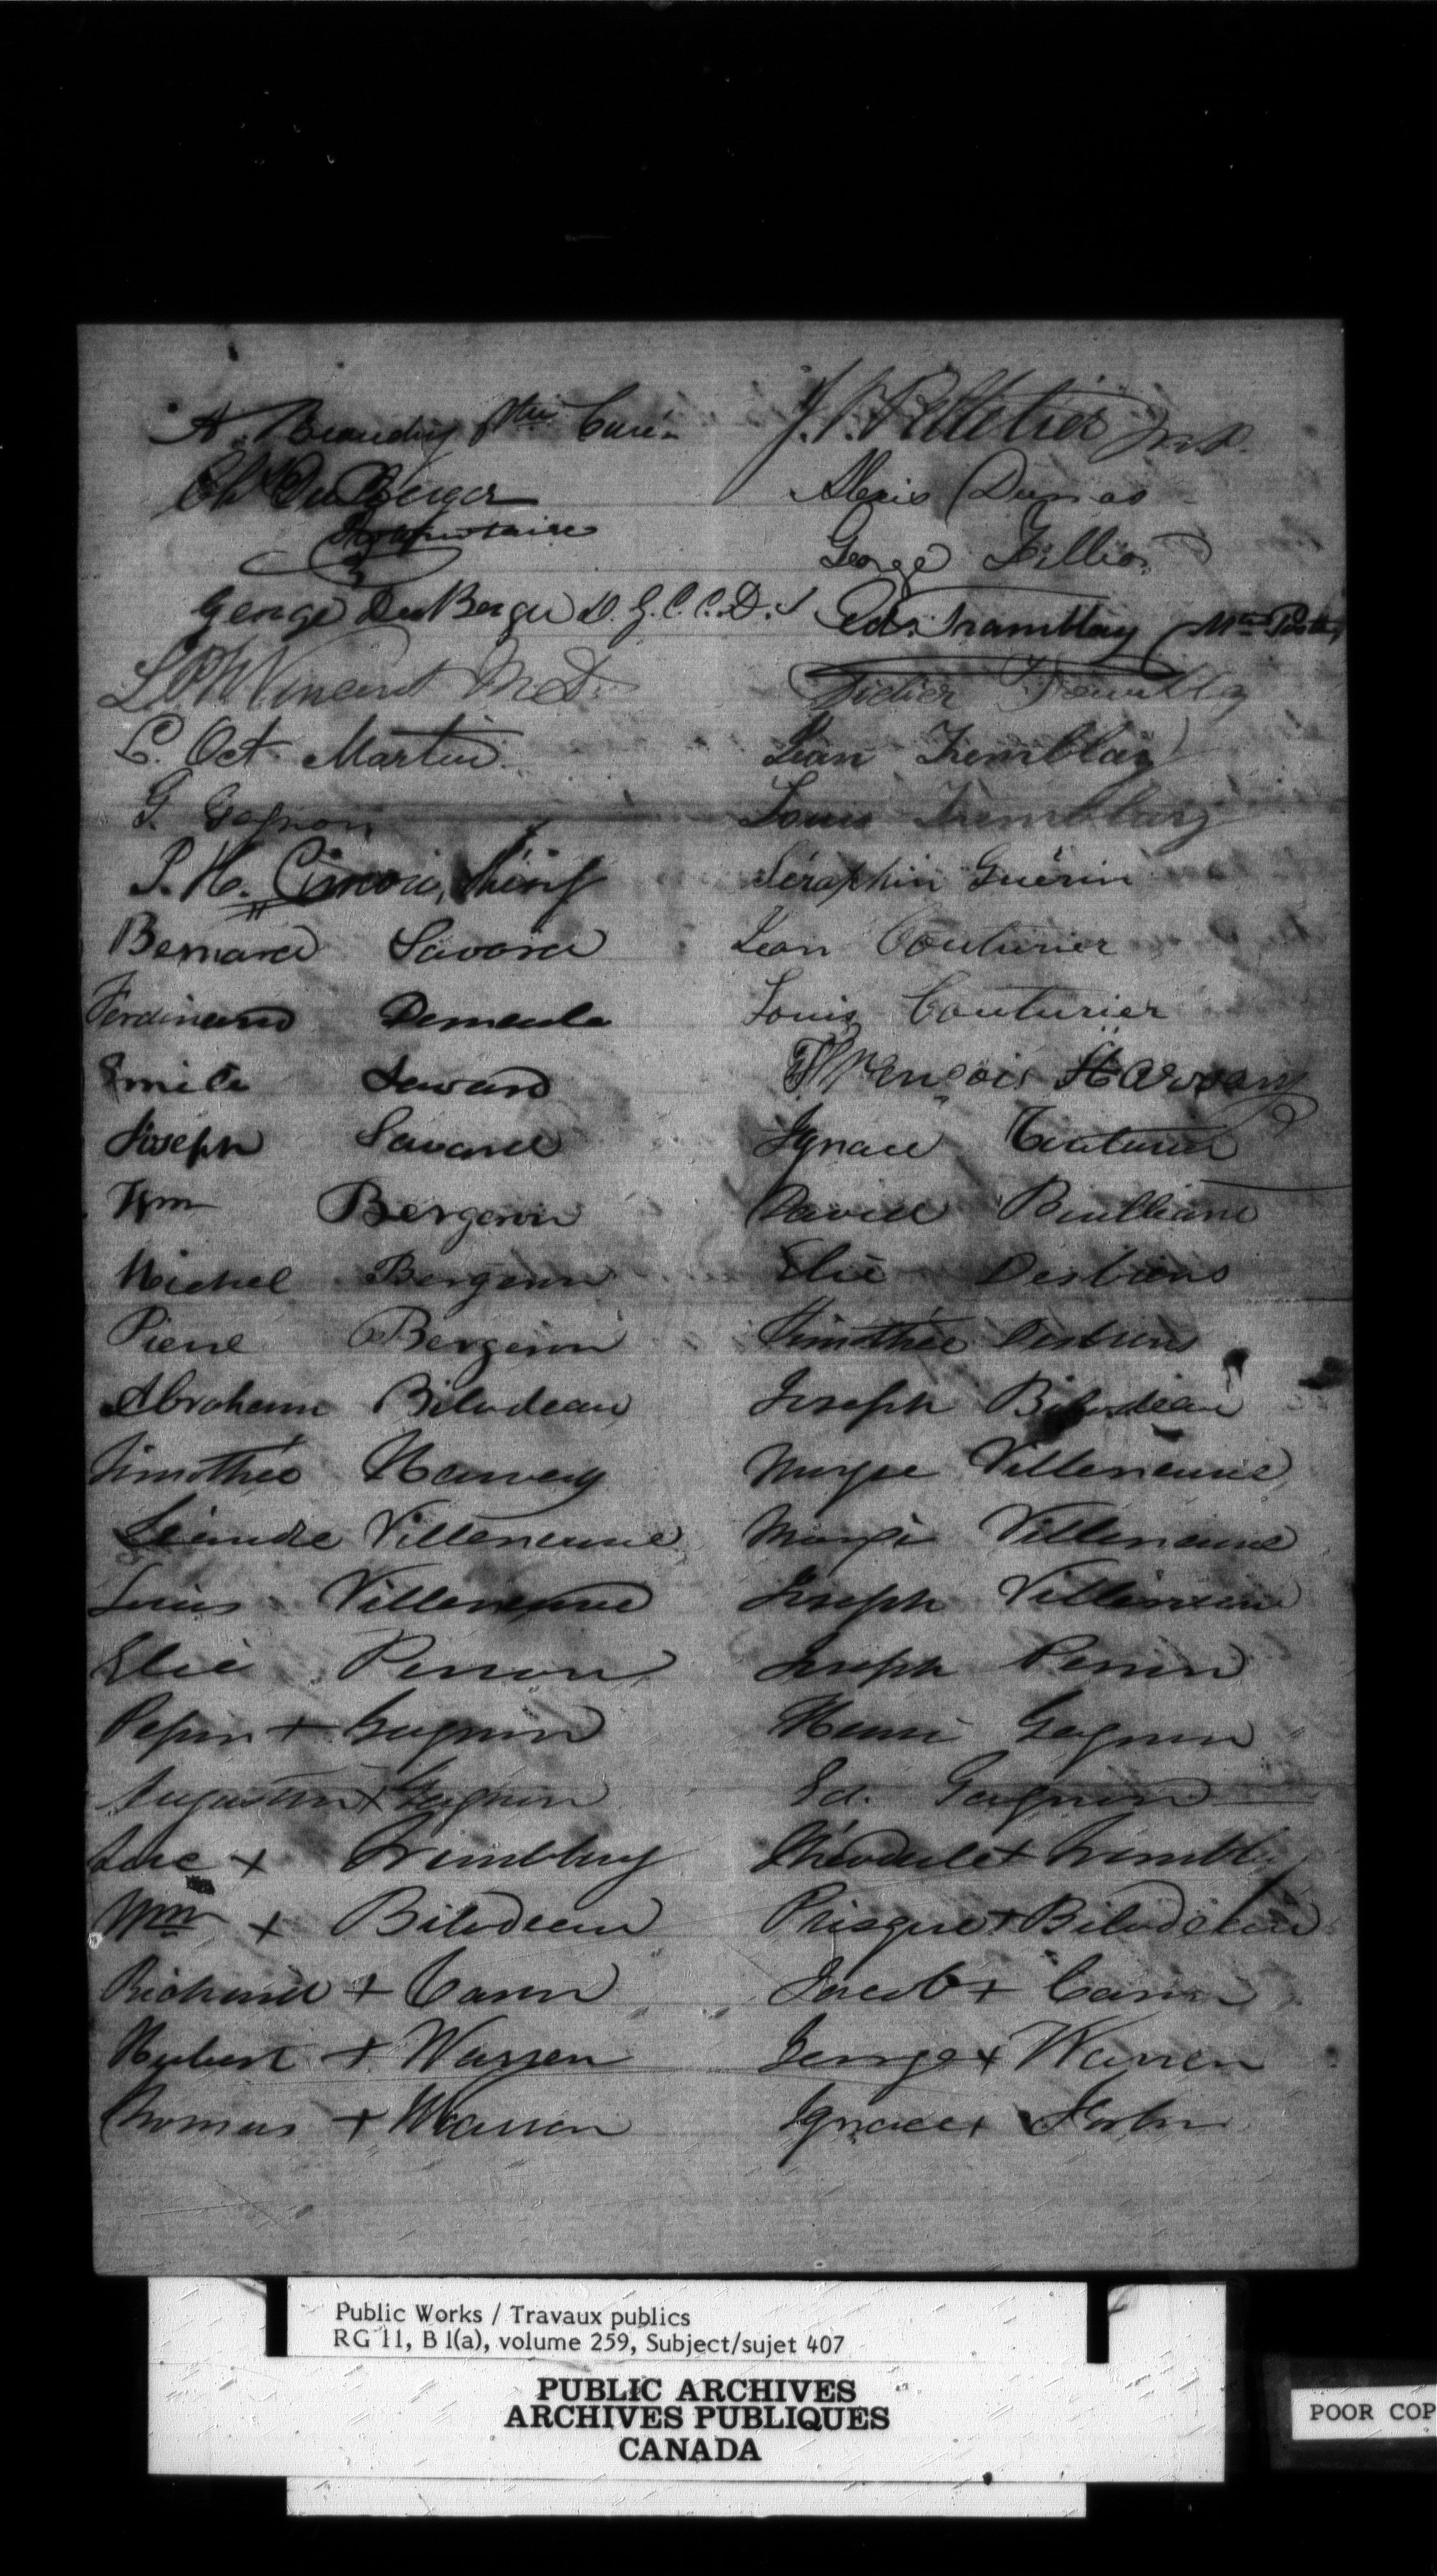 A. Beaudry Ptre Curé
Chs DuBerger
Protonotaire
George DuBerger D. G. C. C. D. S
L. P. W Vincent M D.
L. Oct Martin
G. Gagnon
P. H. Cimon, Shérif
Bernard Savard
Ferdinand Demeule
Emile Savard
Joseph Savard
Wm Bergeron
Michel Bergeron
Pierre Bergeron
Abraham Bilodeau
Timothée Harvey
Léandre Villeneuve
Louis Villeneuve
Elie Perron
Pepin + Gagnon
Augustin + Gagnon
Luc + Trimblay
Wm + Bilodeau
Richard + Caron
Hubert + Warren
Thomas + Warren
J. P. Pelletier M.P.
Alexis Dumas
George Fillion
Ed. Tramblay Mtre Poste
Didier Tremblay
Jean Tremblay
Louis Tremblay
Séraphin Guérin
Léon Couturier
Louis Couturier
François Harvay
Ignace Couturier
David
Elie Desbiens
Timothée Desbiens
Joseph Bilodeau
Villeneuve
Villeneuve
Joseph Villeneuve
Joseph Perron
Henri Gagnon
Ed. Gagnon
Théodule + Trembl
Prisque + Bilodeau
Jacob + Caron
George + Warren
Ignace +
Public Works / Travaux publics
RG 11, B 1(a), volume 259, Subject/sujet 407
PUBLIC ARCHIVES
ARCHIVES PUBLIQUES
CANADA
POOR COP